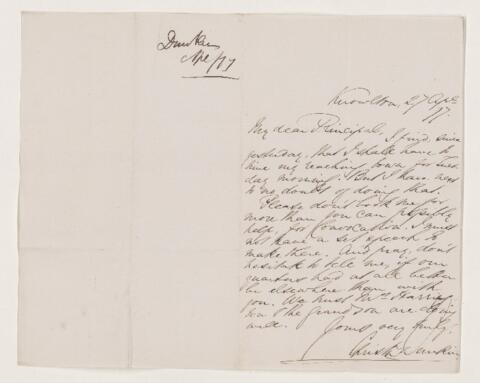 Dunkin
Apl /77
Knowlton, 27 Apl
77.
My dear Principal,
I find, since
yesterday, that I shall have to
time my reaching town for
day morning. But I have
no doubt of doing that.
Please don't book me for
more than you can possibly
help, for Convocation. I must
not have a set speech to
make there. And pray, don't
hesitate to tell me, if our
quarters had at all better
be elsewhere than with
you. We trust Mrs Harring
ton & the grandson are doing
well.
Yours very truly,
Christr Dunkin